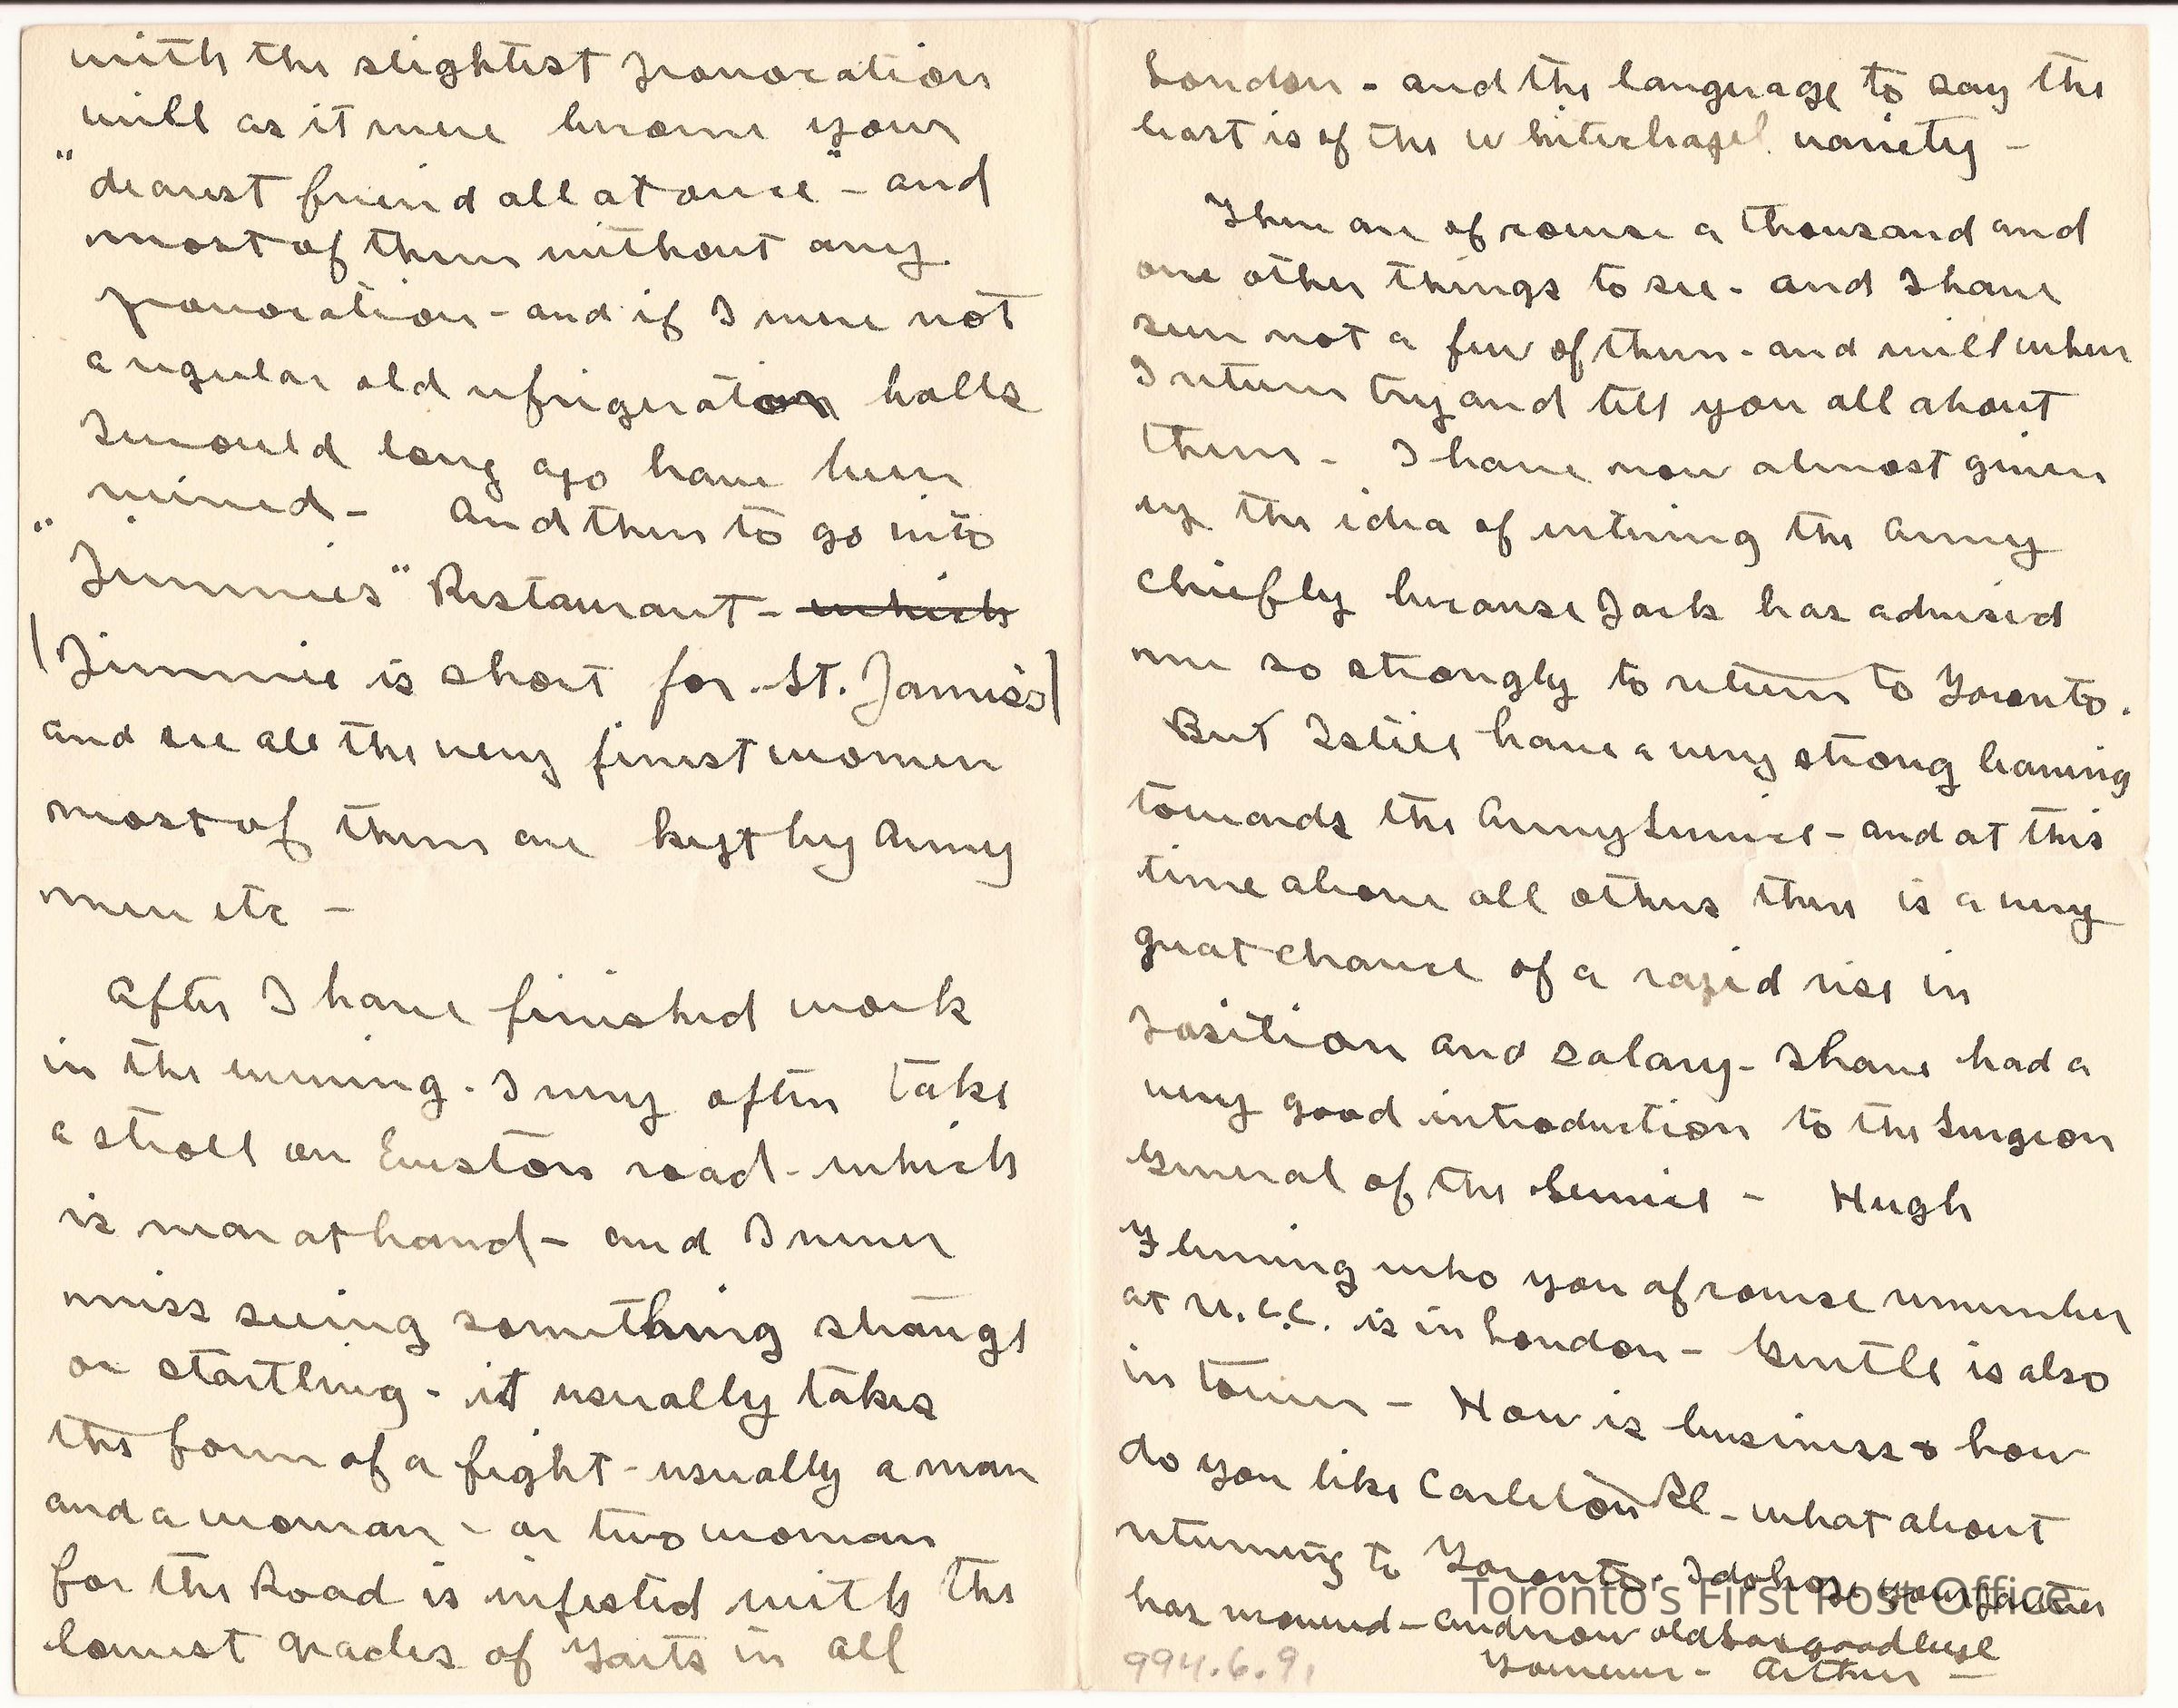 with the slightest provocation
will as it were become your
"dearest friend all at once" - and
most of them without any
provocation - and if I were not
a regular old refrigerator balls
I would long ago have been
ruined - And then to go into
"Jimmies" Restaurant - which
(Jimmie is short for St. James's)
and see all the very finest women
most of them are kept by Army
men etc -
After I have finished work
in the evening. I very often take
a stroll on Euston road - which
is near at hand - and I never
miss seeing something strange
or startling - it usually takes
the form of a fight - usually a man
and a woman - or two woman
for the Road is infested with the
lowest grades of Tarts in all
London - and the language to say the
least is of the Whitechapel variety -
There are of course a thousand and
one other things to see - and I have
seen not a few of them - and will when
I return try and tell you all about
them - I have now almost given
up the idea of entering the Army
chiefly because Jack has advised
me so strongly to return to Toronto.
But I still have a very strong leaning
towards the Army Service - and at this
time above all others there is a very
great chance of a rapid rise in
position and salary - I have had a
very good introduction to the Surgeon
General of the Service - Hugh
Fleming who you of course remember
at U.C.C. is in London - Gentle is also
in town - How is business & how
do you like Carleton Pl - what about
returning to Toronto. I do hope your father
has recovered - and now old boy goodbye
Yours ever - Arthur -
994.6.9.
Toronto's First Post Office